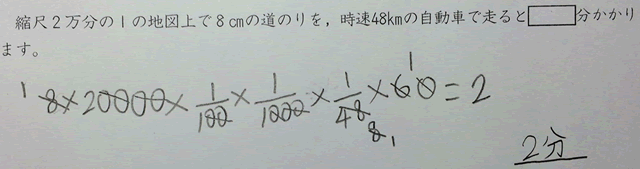 縮尺2万分の1の地図上で8cmの道のりを，時速48kmの自動車で走ると□分かかり
ます。
8×20000×1/100×1/1000×1/48×60=2
1 8 1 1
2分